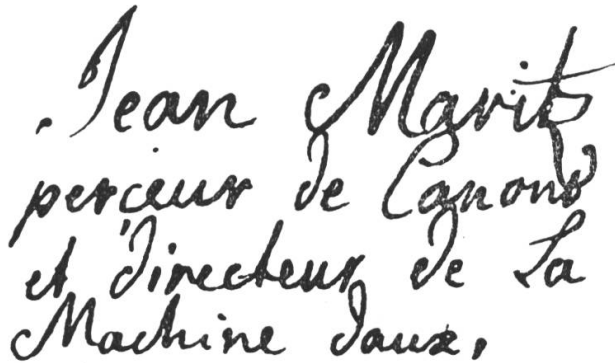 Jean Maritz
perceur de Canons
et directeur de La
Machine daux,